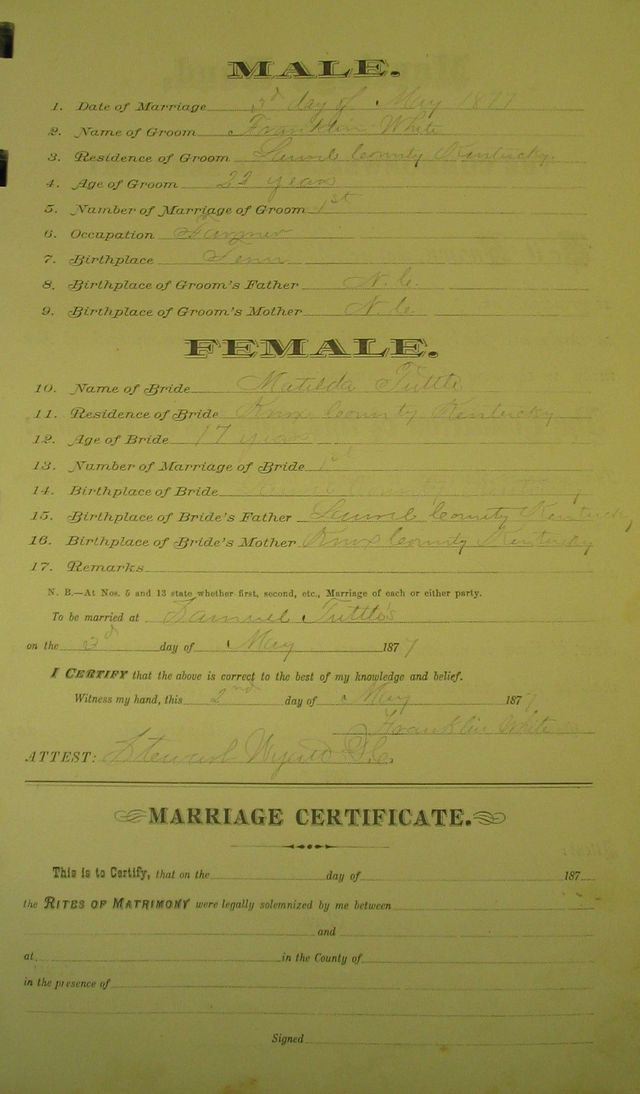 MALE.
1. Date of Marriage 3rd day of May 1877
2. Name of Groom Franklin White
3. Residence of Groom Laurel County Kentucky
4. Age of Groom 22 years
5. Number of Marriage of Groom 1st
6. Occupation Farmer
7. Birthplace Tenn
8. Birthplace of Groom's Father N.C.
9. Birthplace of Groom's Mother N.C.
FEMALE.
10. Name of Bride Matilda Tuttle
11. Residence of Bride Knox County Kentucky
12. Age of Bride 17 years
13. Number of Marriage of Bride 1st
14. Birthplace of Bride
15. Birthplace of Bride's Father Laurel County Kentucky
16. Birthplace of Bride's Mother Knox County Kentucky
17. Remarks
N. B.—At Nos. 5 and 13 state whether first, second, etc., Marriage of each or either party.
To be married at Samuel Tuttle's
on the 3d day of May 1877
I CERTIFY that the above is correct to the best of my knowledge and belief.
Witness my hand, this 2nd day of May 1877
Franklin White
ATTEST: Stewart D.C.
MARRIAGE CERTIFICATE.
This is to Certify, that on the day of 187
the RITES OF MATRIMONY were legally solemnized by me between
and
at in the County of
in the presence of
Signed